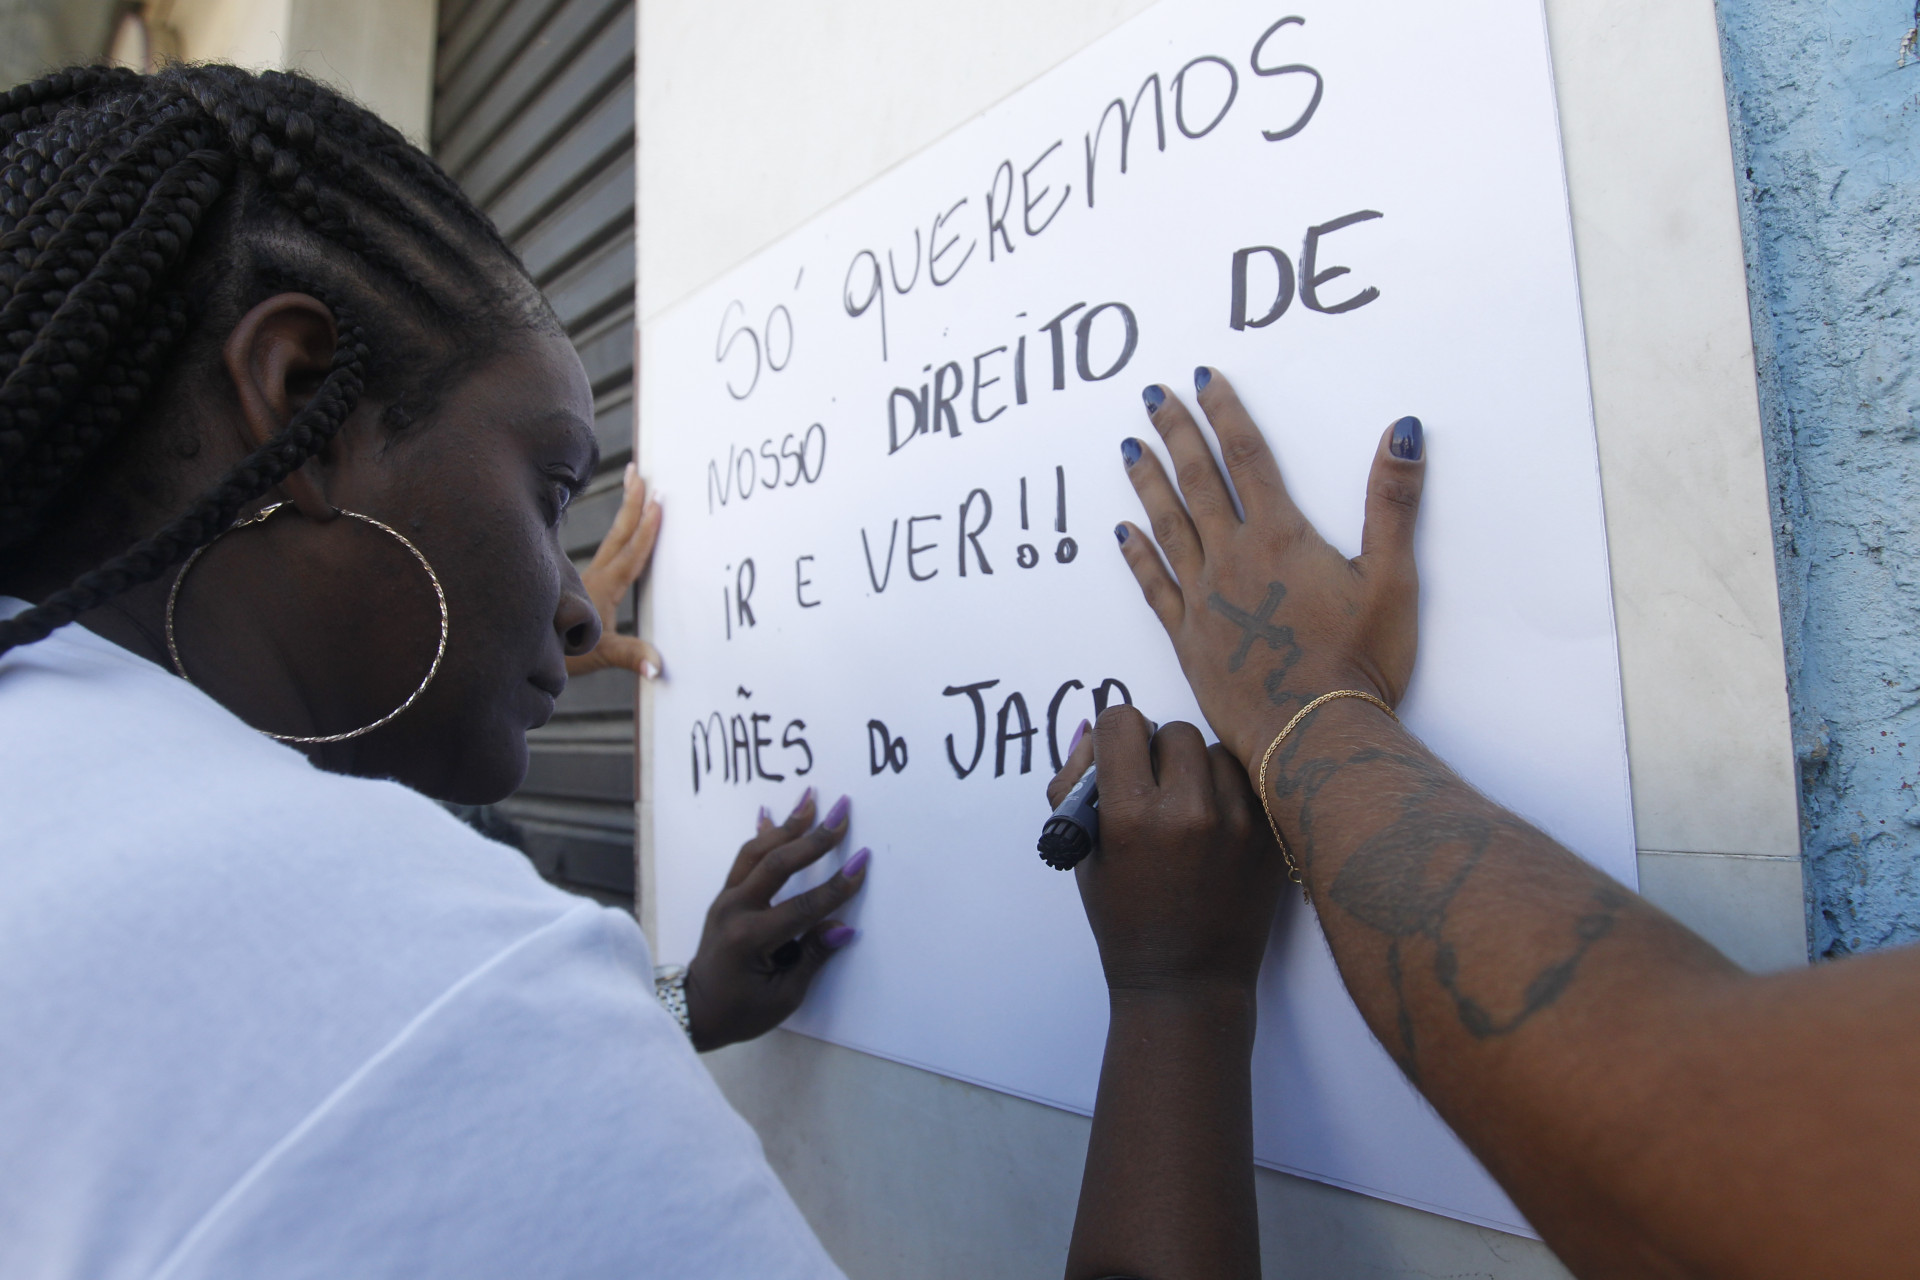 SÓ QUEREMOS
NOSSO DIREITO DE
IR E VER!!
MÃES DO JACA